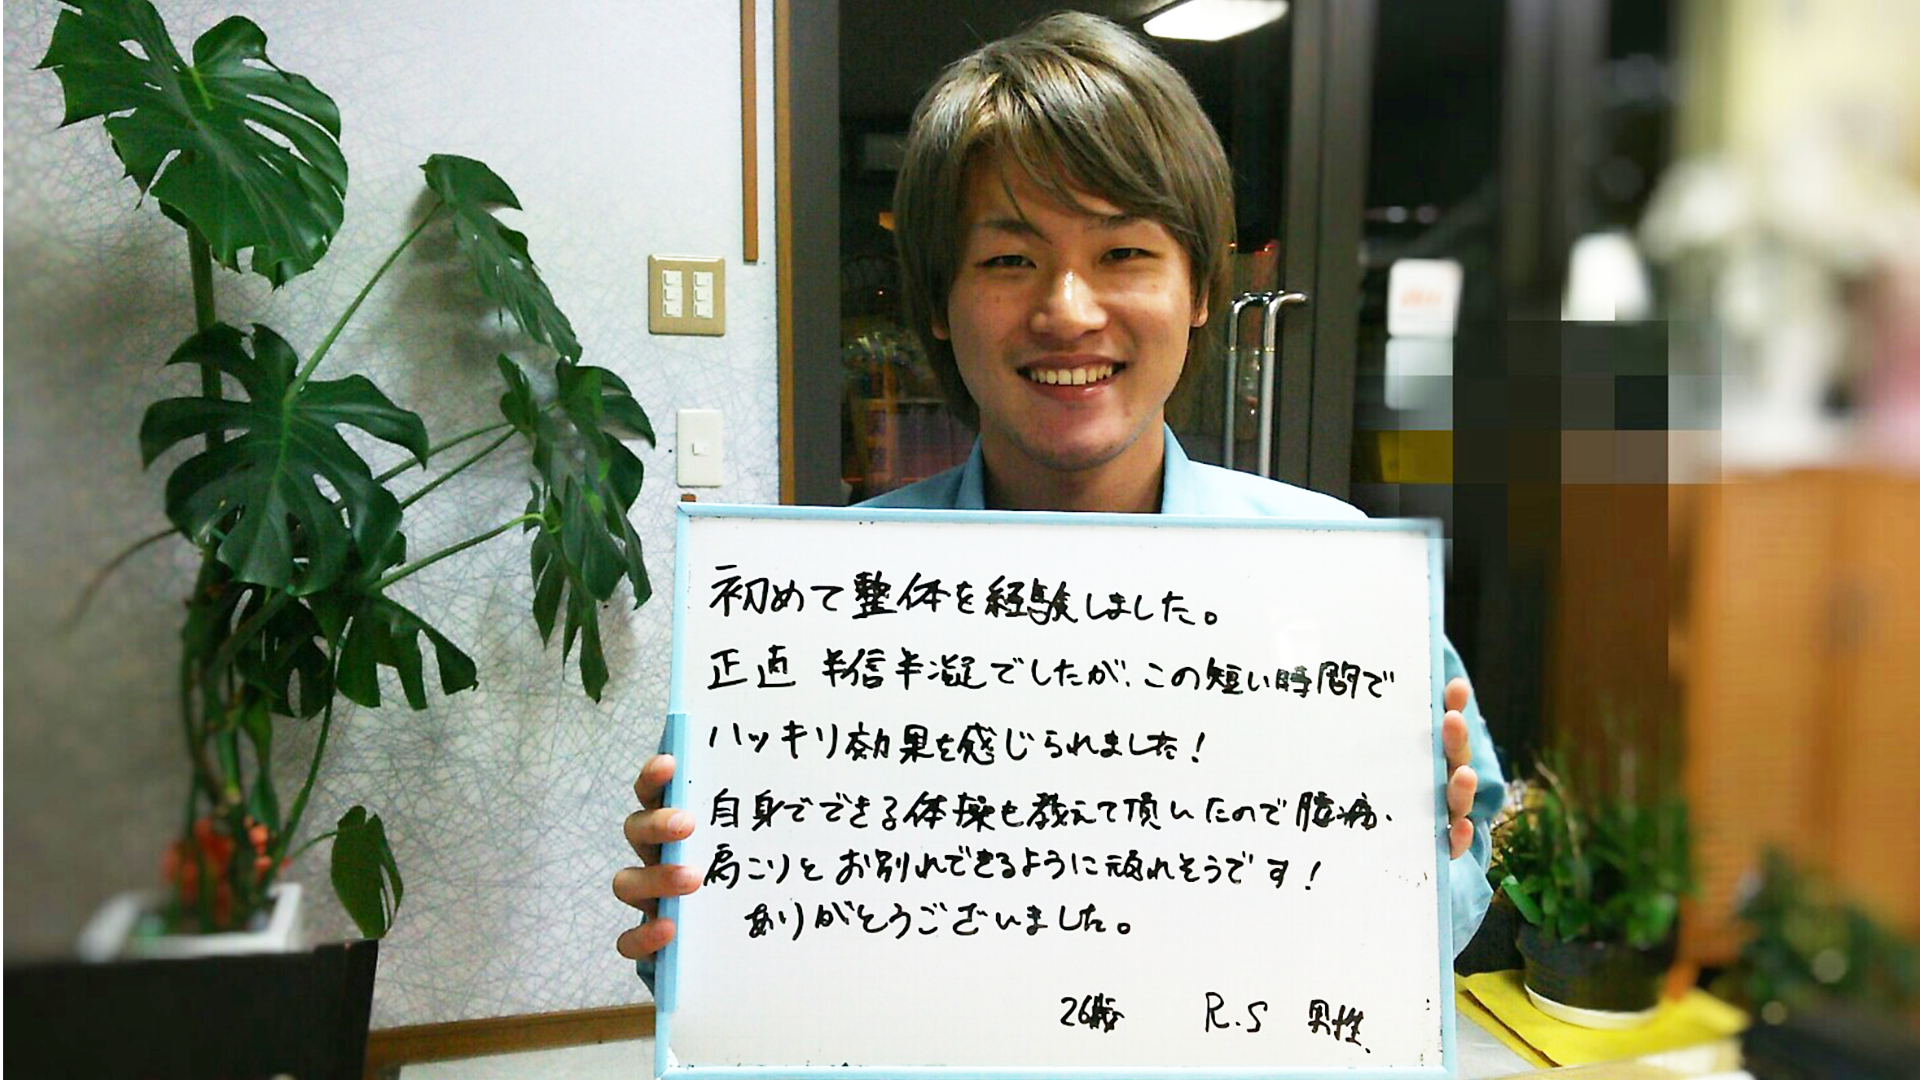 初めて整体を経験しました。
正直 半信半凝でしたが、この短い時間で
ハッキリ効果を感じられました！
自身でできる体操も教えて頂いたので腰痛、
肩こりとお別れできるように頑れそうです！
ありがとうございました。
26歳 R.S 男性